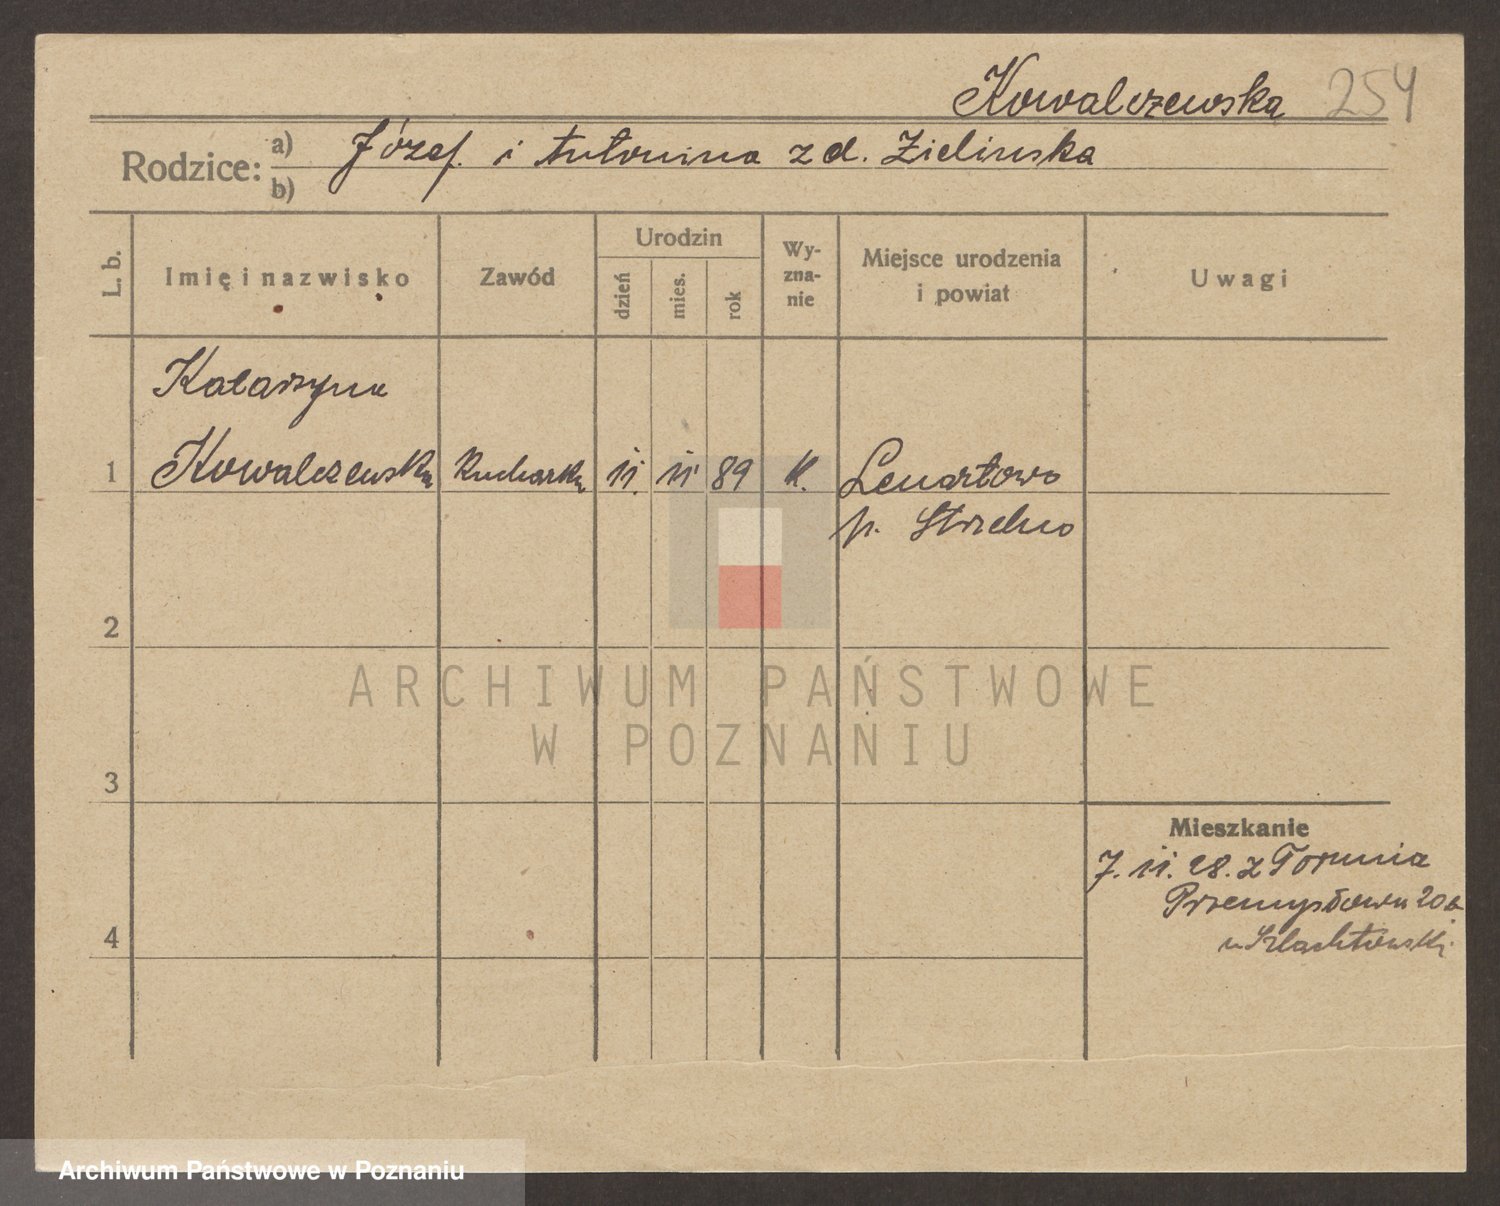 Kowalczewska 254
Rodzice: a) b) Józef i Antonina z d. Zielinska
L. b.
Imię i nazwisko
Zawód
Urodzin
dzień
mies.
rok
Wy-
zna-
nie
Miejsce urodzenia
i powiat
Uwagi
Katarzyna
1 Kowalczewska Kucharka 11. 11 89 K. Lenartowo
p. Strzelno
2
3
4
Mieszkanie
7. 11. 28. z Torunia
Przemysłowa 20a
u Szlachtowski
ARCHIWUM PAŃSTWOWE
W POZNANIU
Archiwum Państwowe w Poznaniu